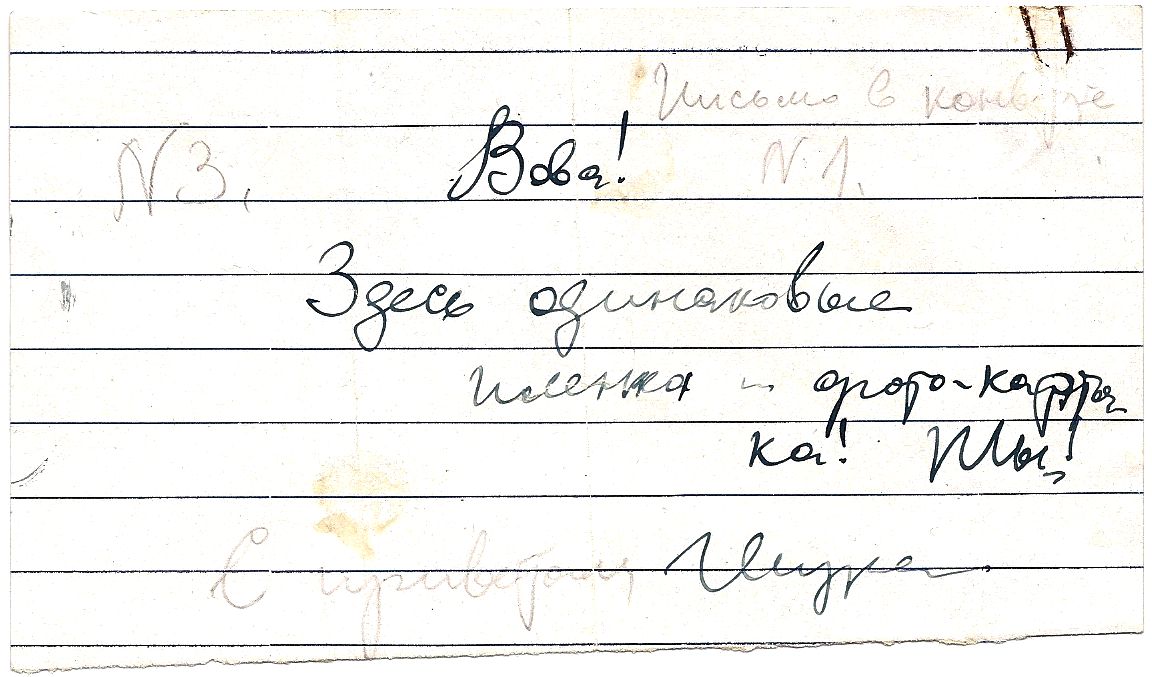 Письмо в конверте
N 3. Вова! N 1.
Здесь одинаковые
пленка и фото-карточ-
ка!
С приветом Шура